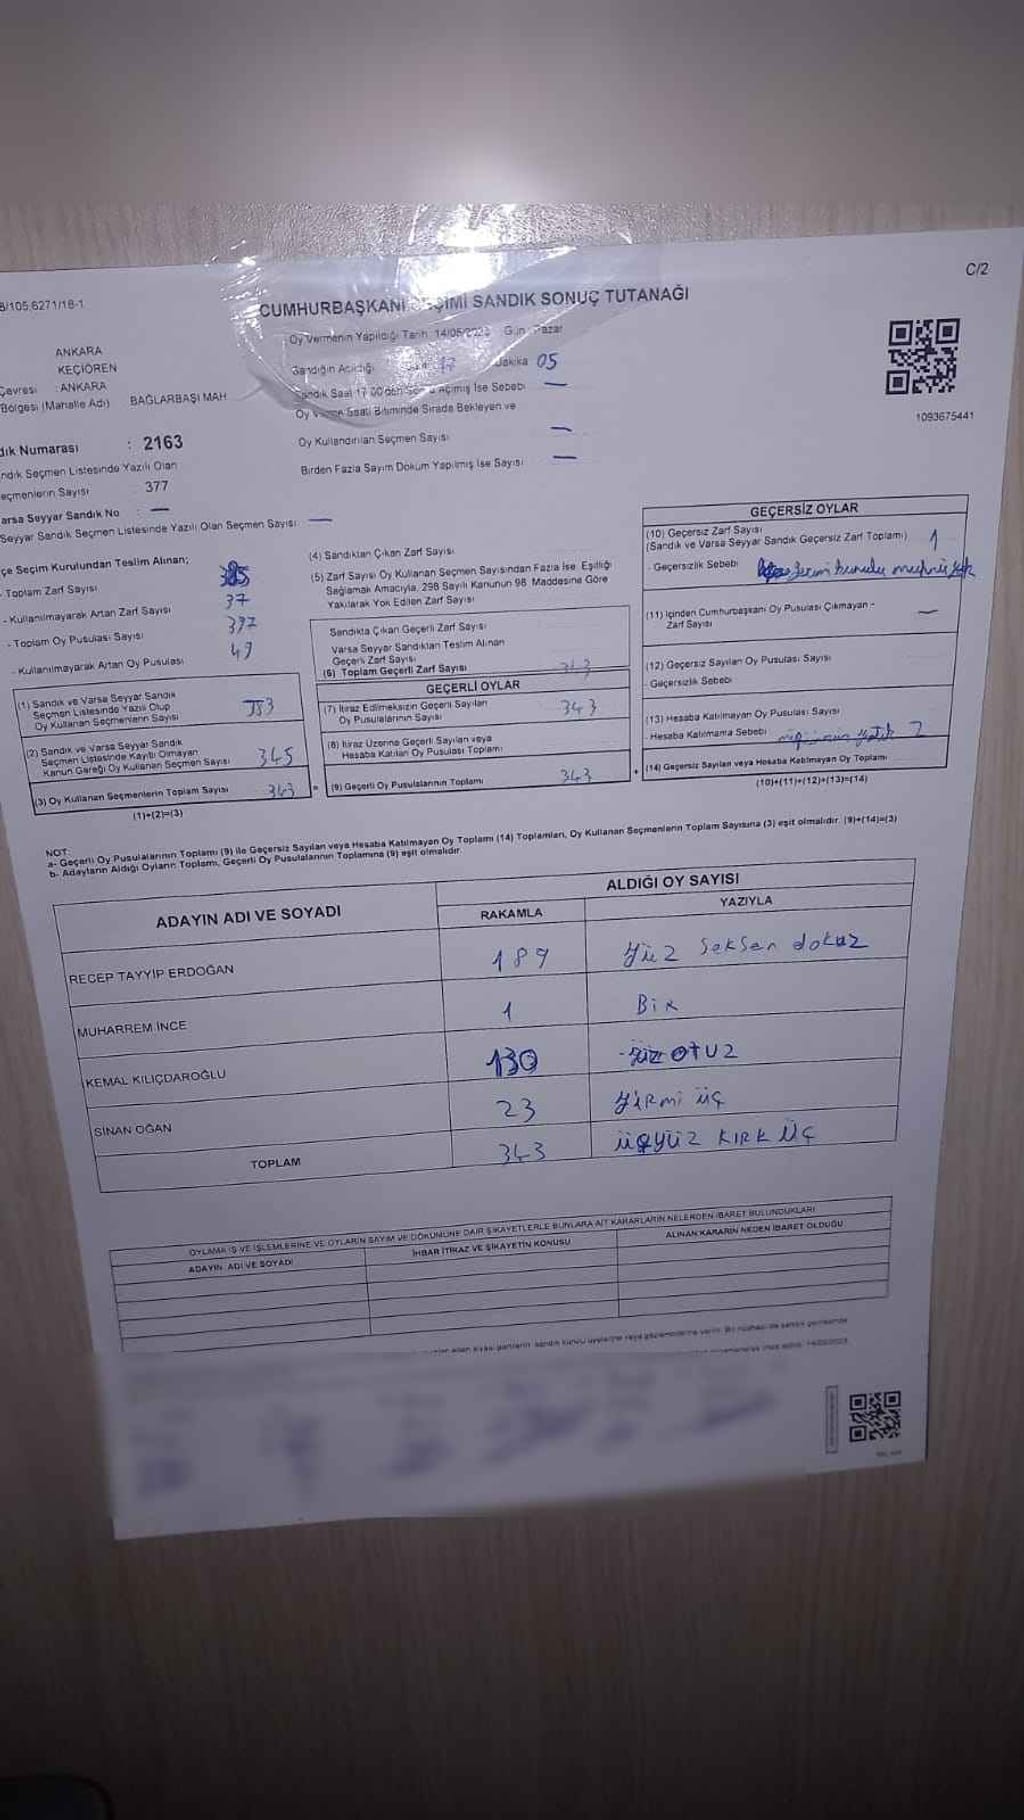 C/2
B/105 6271/18-1
CUMHURBAŞKANI SEÇİMİ SANDIK SONUÇ TUTANAĞI
Oy Vermenin Yapıldığı Tarih: 14/05/2023 Gün: Pazar
ANKARA
KEÇİÖREN
Çevresi : ANKARA
Bölgesi (Mahalle Adı) BAĞLARBAŞI MAH
Sandığın Açıldığı 17 Dakika 05
Sandık Saat 17.00'den Sonra Açılmış İse Sebebi —
Oy Verme Saati Bitiminde Sırada Bekleyen ve
Oy Kullandırılan Seçmen Sayısı —
Birden Fazla Sayım Döküm Yapılmış İse Sayısı —
1093675441
dık Numarası : 2163
ndık Seçmen Listesinde Yazılı Olan
eçmenlerin Sayısı 377
arsa Seyyar Sandık No : —
Seyyar Sandık Seçmen Listesinde Yazılı Olan Seçmen Sayısı —
çe Seçim Kurulundan Teslim Alınan;
- Toplam Zarf Sayısı
- Kullanılmayarak Artan Zarf Sayısı 37
- Toplam Oy Pusulası Sayısı
- Kullanılmayarak Artan Oy Pusulası 49
(1) Sandık ve Varsa Seyyar Sandık
Seçmen Listesinde Yazılı Olup
Oy Kullanan Seçmenlerin Sayısı
(2) Sandık ve Varsa Seyyar Sandık
Seçmen Listesinde Kayıtlı Olmayan
Kanun Gereği Oy Kullanan Seçmen Sayısı 345
(3) Oy Kullanan Seçmenlerin Toplam Sayısı 343
(1)+(2)=(3)
(4) Sandıktan Çıkan Zarf Sayısı
(5) Zarf Sayısı Oy Kullanan Seçmen Sayısından Fazla İse, Eşitliği
Sağlamak Amacıyla, 298 Sayılı Kanunun 98. Maddesine Göre
Yakılarak Yok Edilen Zarf Sayısı
Sandıkta Çıkan Geçerli Zarf Sayısı
Varsa Seyyar Sandıktan Teslim Alınan
Geçerli Zarf Sayısı
(6) Toplam Geçerli Zarf Sayısı 343
GEÇERLİ OYLAR
(7) İtiraz Edilmeksizin Geçerli Sayılan
Oy Pusulalarının Sayısı 343
(8) İtiraz Üzerine Geçerli Sayılan veya
Hesaba Katılan Oy Pusulası Toplamı
= (9) Geçerli Oy Pusulalarının Toplamı 343 +
GEÇERSİZ OYLAR
(10) Geçersiz Zarf Sayısı
(Sandık ve Varsa Seyyar Sandık Geçersiz Zarf Toplamı) 1
- Geçersizlik Sebebi
(11) İçinden Cumhurbaşkanı Oy Pusulası Çıkmayan -
Zarf Sayısı —
(12) Geçersiz Sayılan Oy Pusulası Sayısı
- Geçersizlik Sebebi
(13) Hesaba Katılmayan Oy Pusulası Sayısı
- Hesaba Katılmama Sebebi 2
(14) Geçersiz Sayılan veya Hesaba Katılmayan Oy Toplamı
(10)+(11)+(12)+(13)=(14)
NOT:
a- Geçerli Oy Pusulalarının Toplamı (9) ile Geçersiz Sayılan veya Hesaba Katılmayan Oy Toplamı (14) Toplamları, Oy Kullanan Seçmenlerin Toplam Sayısına (3) eşit olmalıdır. (9)+(14)=(3)
b- Adayların Aldığı Oyların Toplamı, Geçerli Oy Pusulalarının Toplamına (9) eşit olmalıdır.
ADAYIN ADI VE SOYADI
ALDIĞI OY SAYISI
RAKAMLA YAZIYLA
RECEP TAYYİP ERDOĞAN 189 Yüz Seksen dokuz
MUHARREM İNCE 1 BİR
KEMAL KILIÇDAROĞLU 130 Yüz otuz
SİNAN OĞAN 23 YİRMİ ÜÇ
TOPLAM 343 ÜÇYÜZ KIRK ÜÇ
OYLAMA İŞ VE İŞLEMLERİNE VE OYLARIN SAYIM VE DÖKÜMÜNE DAİR ŞİKAYETLERLE BUNLARA AİT KARARLARIN NELERDEN İBARET BULUNDUKLARI
ADAYIN ADI VE SOYADI
İHBAR İTİRAZ VE ŞİKAYETİN KONUSU
ALINAN KARARIN NEDEN İBARET OLDUĞU